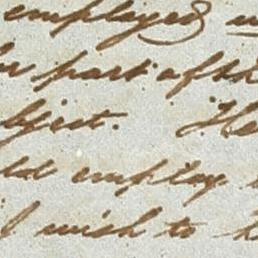 employed
part of th
bject. He
ld employ
I wish to